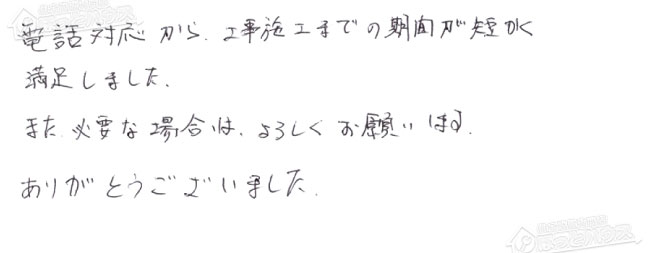 電話対応から、工事施工までの期間が短かく
満足しました。
また、必要な場合は、よろしくお願いします。
ありがとうございました。